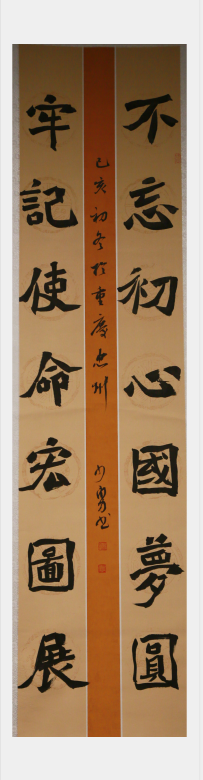 不忘初心國夢圓
牢記使命宏圖展
己亥初冬於重慶忠州